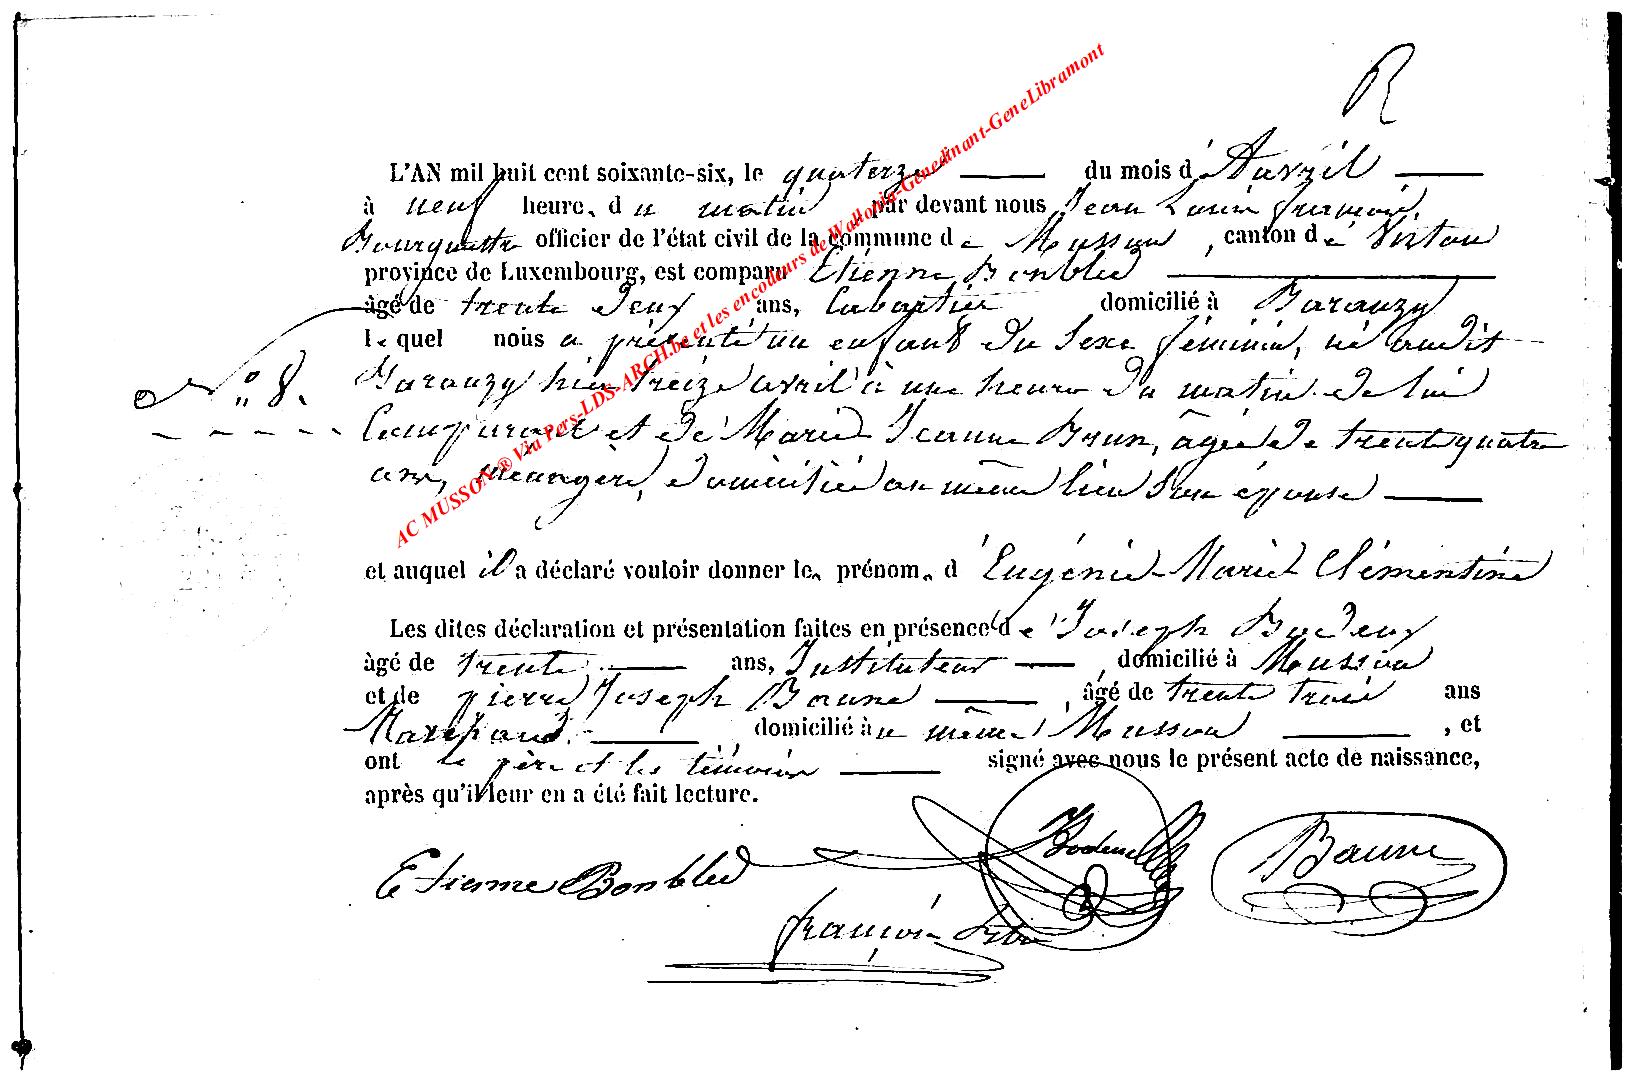 R
L'AN mil huit cent soixante-six, le quatorze du mois d'Avril
à neuf heures du matin par devant nous Jean Louis François
officier de l'état civil de la commune de Musson, canton de Virton
province de Luxembourg, est comparu Etienne Bonbled
âgé de trente deux ans, Cabartier domicilié à Baranzy
lequel nous a présenté un enfant du Sexe féminin, né audit
N° 8.
Baranzy hier treize avril à une heure du matin de lui
Comparant et de Marie Jeanne Brun, âgée de trente quatre
ans, ménagère, domiciliée au même lieu Son épouse
et auquel il a déclaré vouloir donner les prénoms d'Eugénie Marie Clémentine
Les dites déclaration et présentation faites en présence de Joseph
âgé de trente ans, Instituteur domicilié à Musson
et de pierre Joseph Baune âgé de trente trois ans
Marchand domicilié au même Musson, et
ont le père et les témoins signé avec nous le présent acte de naissance,
après qu'il leur en a été fait lecture.
Etienne Bonbled
Baune
françois
AC MUSSON ® Via Pers-LDS-ARCH.be et les encodeurs de Wallonia-Genedinant-GeneLibramont